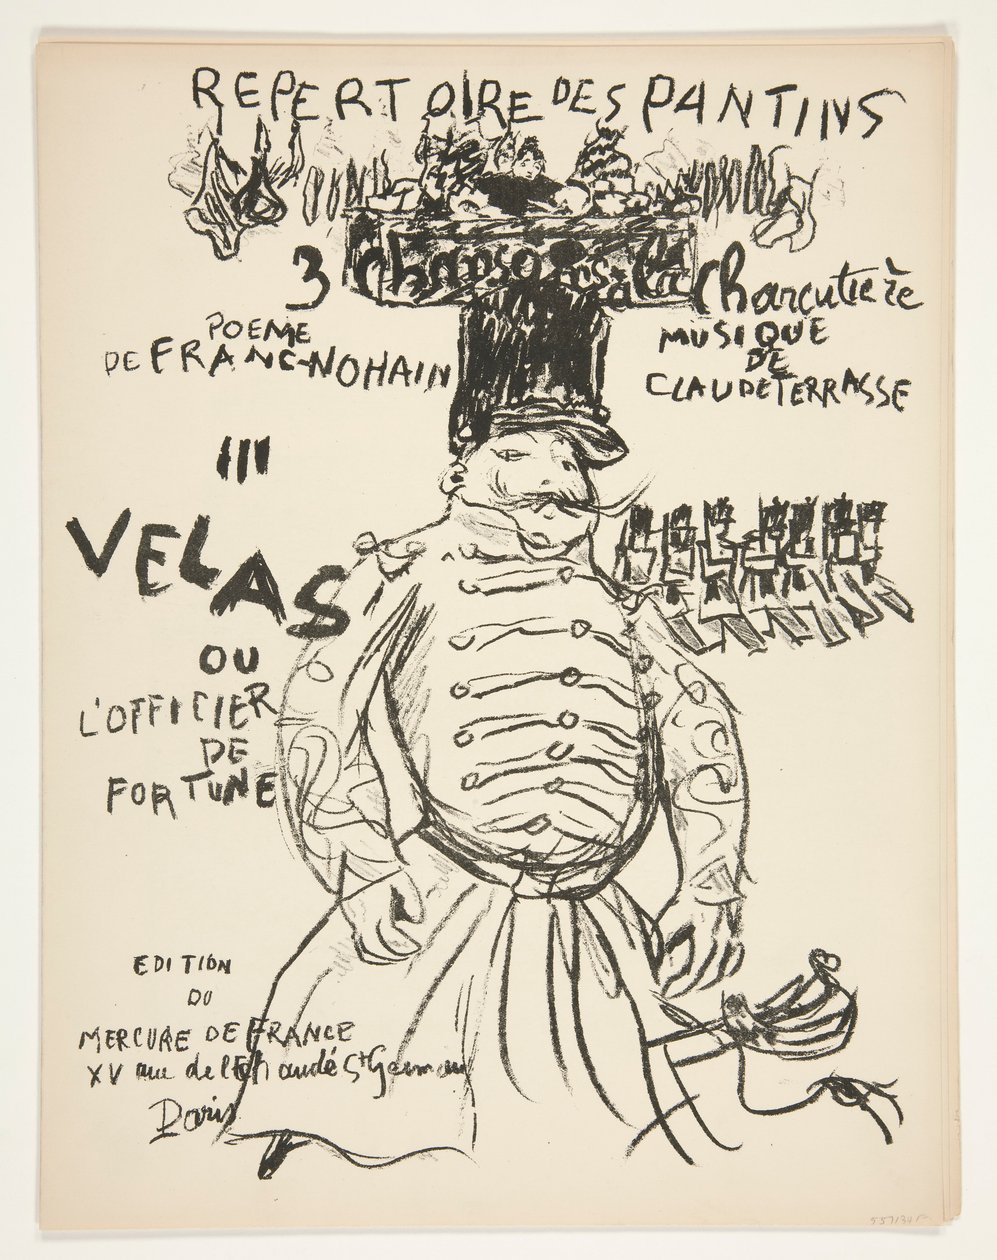 REPERTOIRE DES PANTINS
3 Chansons à la Charcutière
POEME
DE FRANC-NOHAIN
MUSIQUE
DE
CLAUDE TERRASSE
III
VELAS
OU
L'OFFICIER
DE
FORTUNE
EDITION
DU
MERCURE DE FRANCE
XV rue de l'Echaudé St Germain
Paris